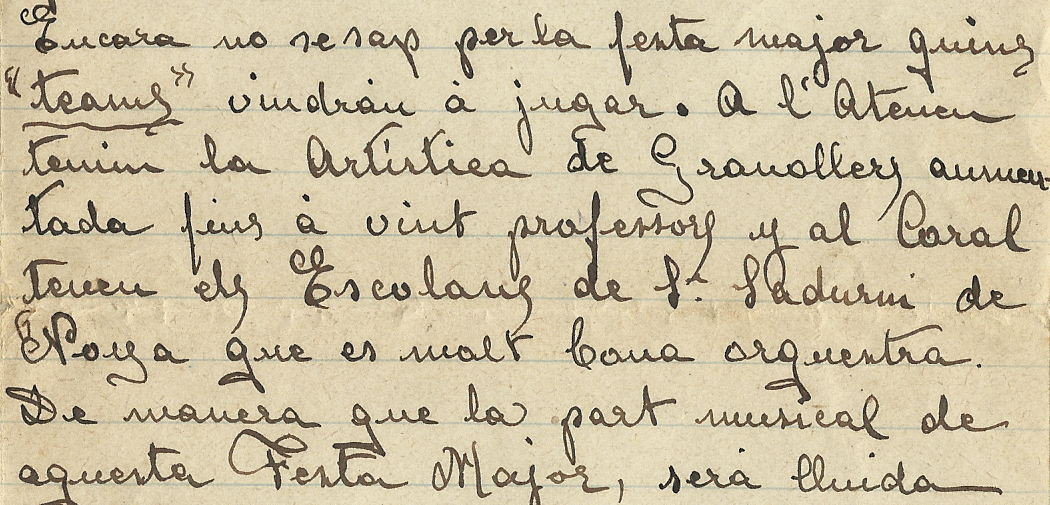 Encara no se sap per la festa major quins
"teams" vindrán à jugar. A l'Ateneu
tenim la Artística de Granollers aumen-
tada fins à vint professors y al Coral
tenen els Escolans de St. Sadurni de
Noya que es molt bona orquestra.
De manera que la part musical de
aquesta Festa Major, será lluida